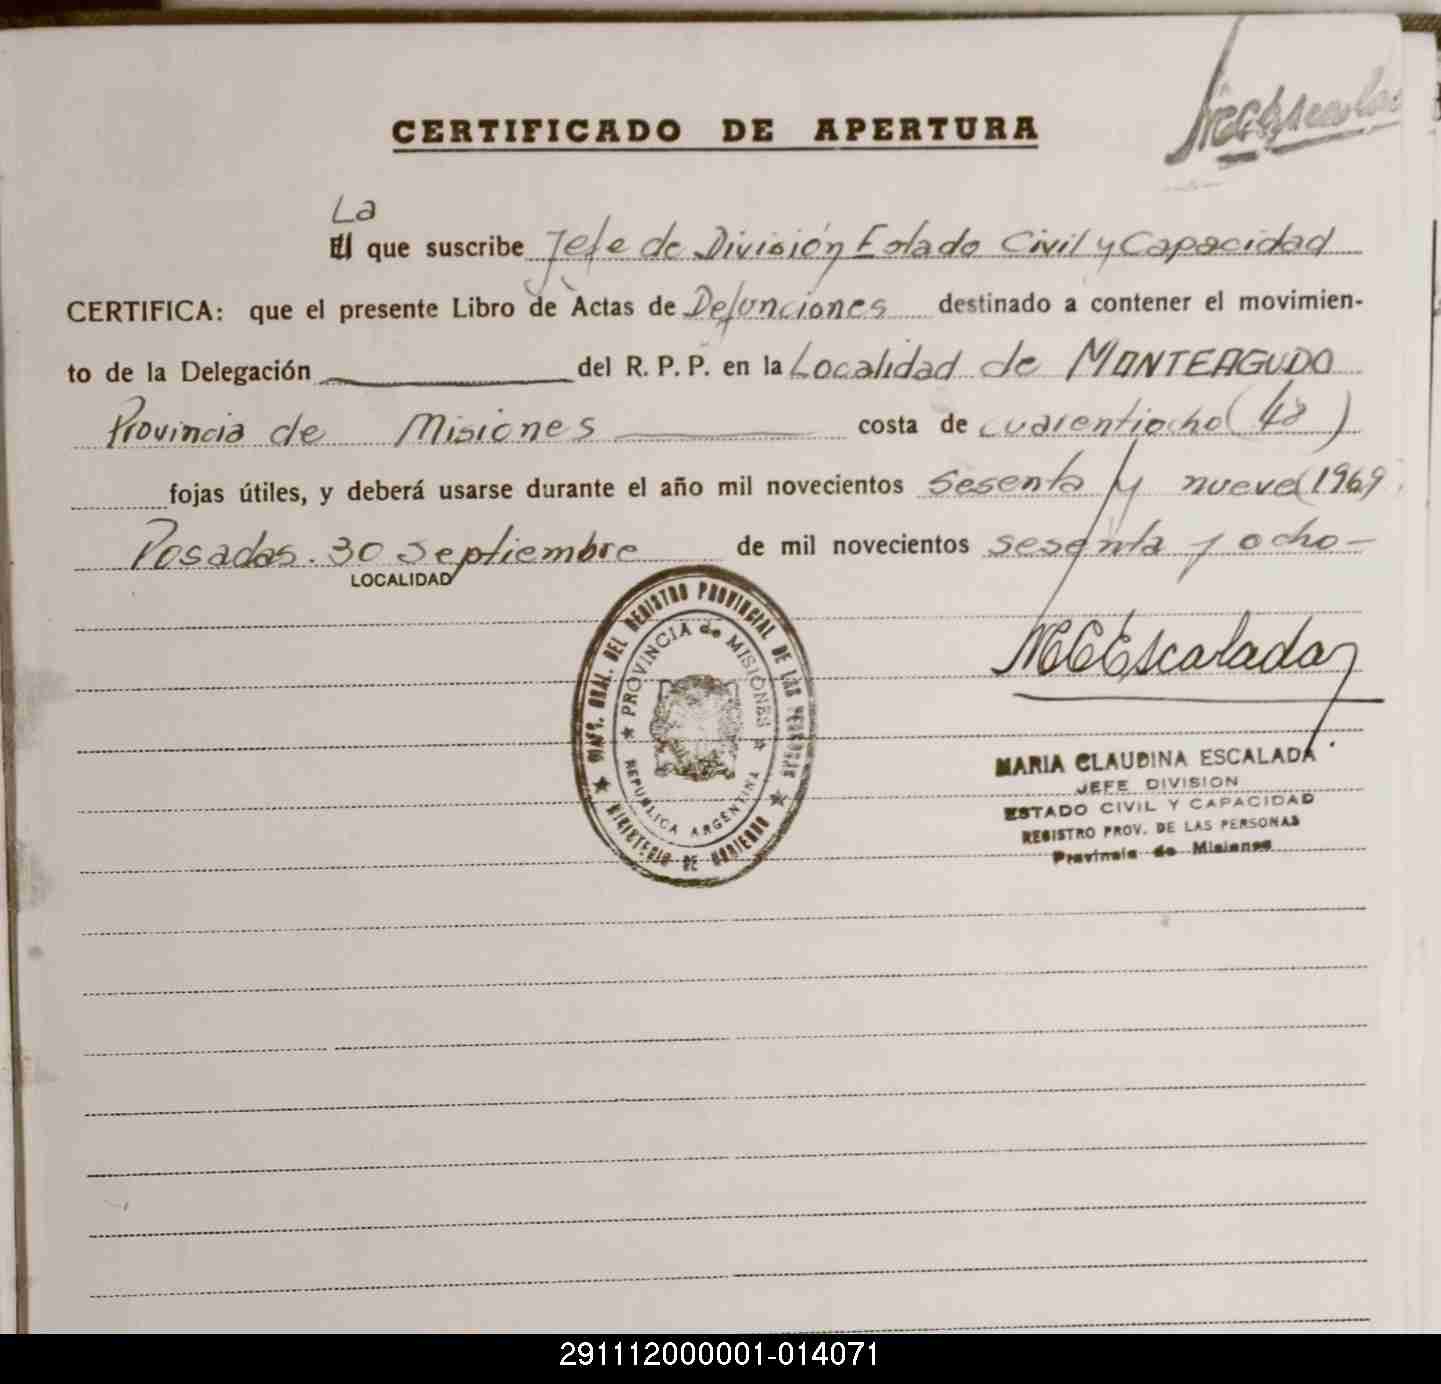 MCEscalada
CERTIFICADO DE APERTURA
La
El que suscribe Jefe de División Estado Civil y Capacidad
CERTIFICA: que el presente Libro de Actas de Defunciones destinado a contener el movimien-
to de la Delegación del R. P. P. en la Localidad de MONTEAGUDO
Provincia de Misiones costa de cuarentiocho (48)
fojas útiles, y deberá usarse durante el año mil novecientos sesenta y nueve (1969
Posadas. 30 Septiembre de mil novecientos sesenta y ocho -
LOCALIDAD
DIREC. GRAL. DEL REGISTRO PROVINCIAL DE LAS PERSONAS
PROVINCIA de MISIONES
REPUBLICA ARGENTINA
MINISTERIO DE GOBIERNO
MCEscalada
MARIA CLAUDINA ESCALADA
JEFE DIVISION
ESTADO CIVIL Y CAPACIDAD
REGISTRO PROV. DE LAS PERSONAS
Provincia de Misiones
291112000001-014071